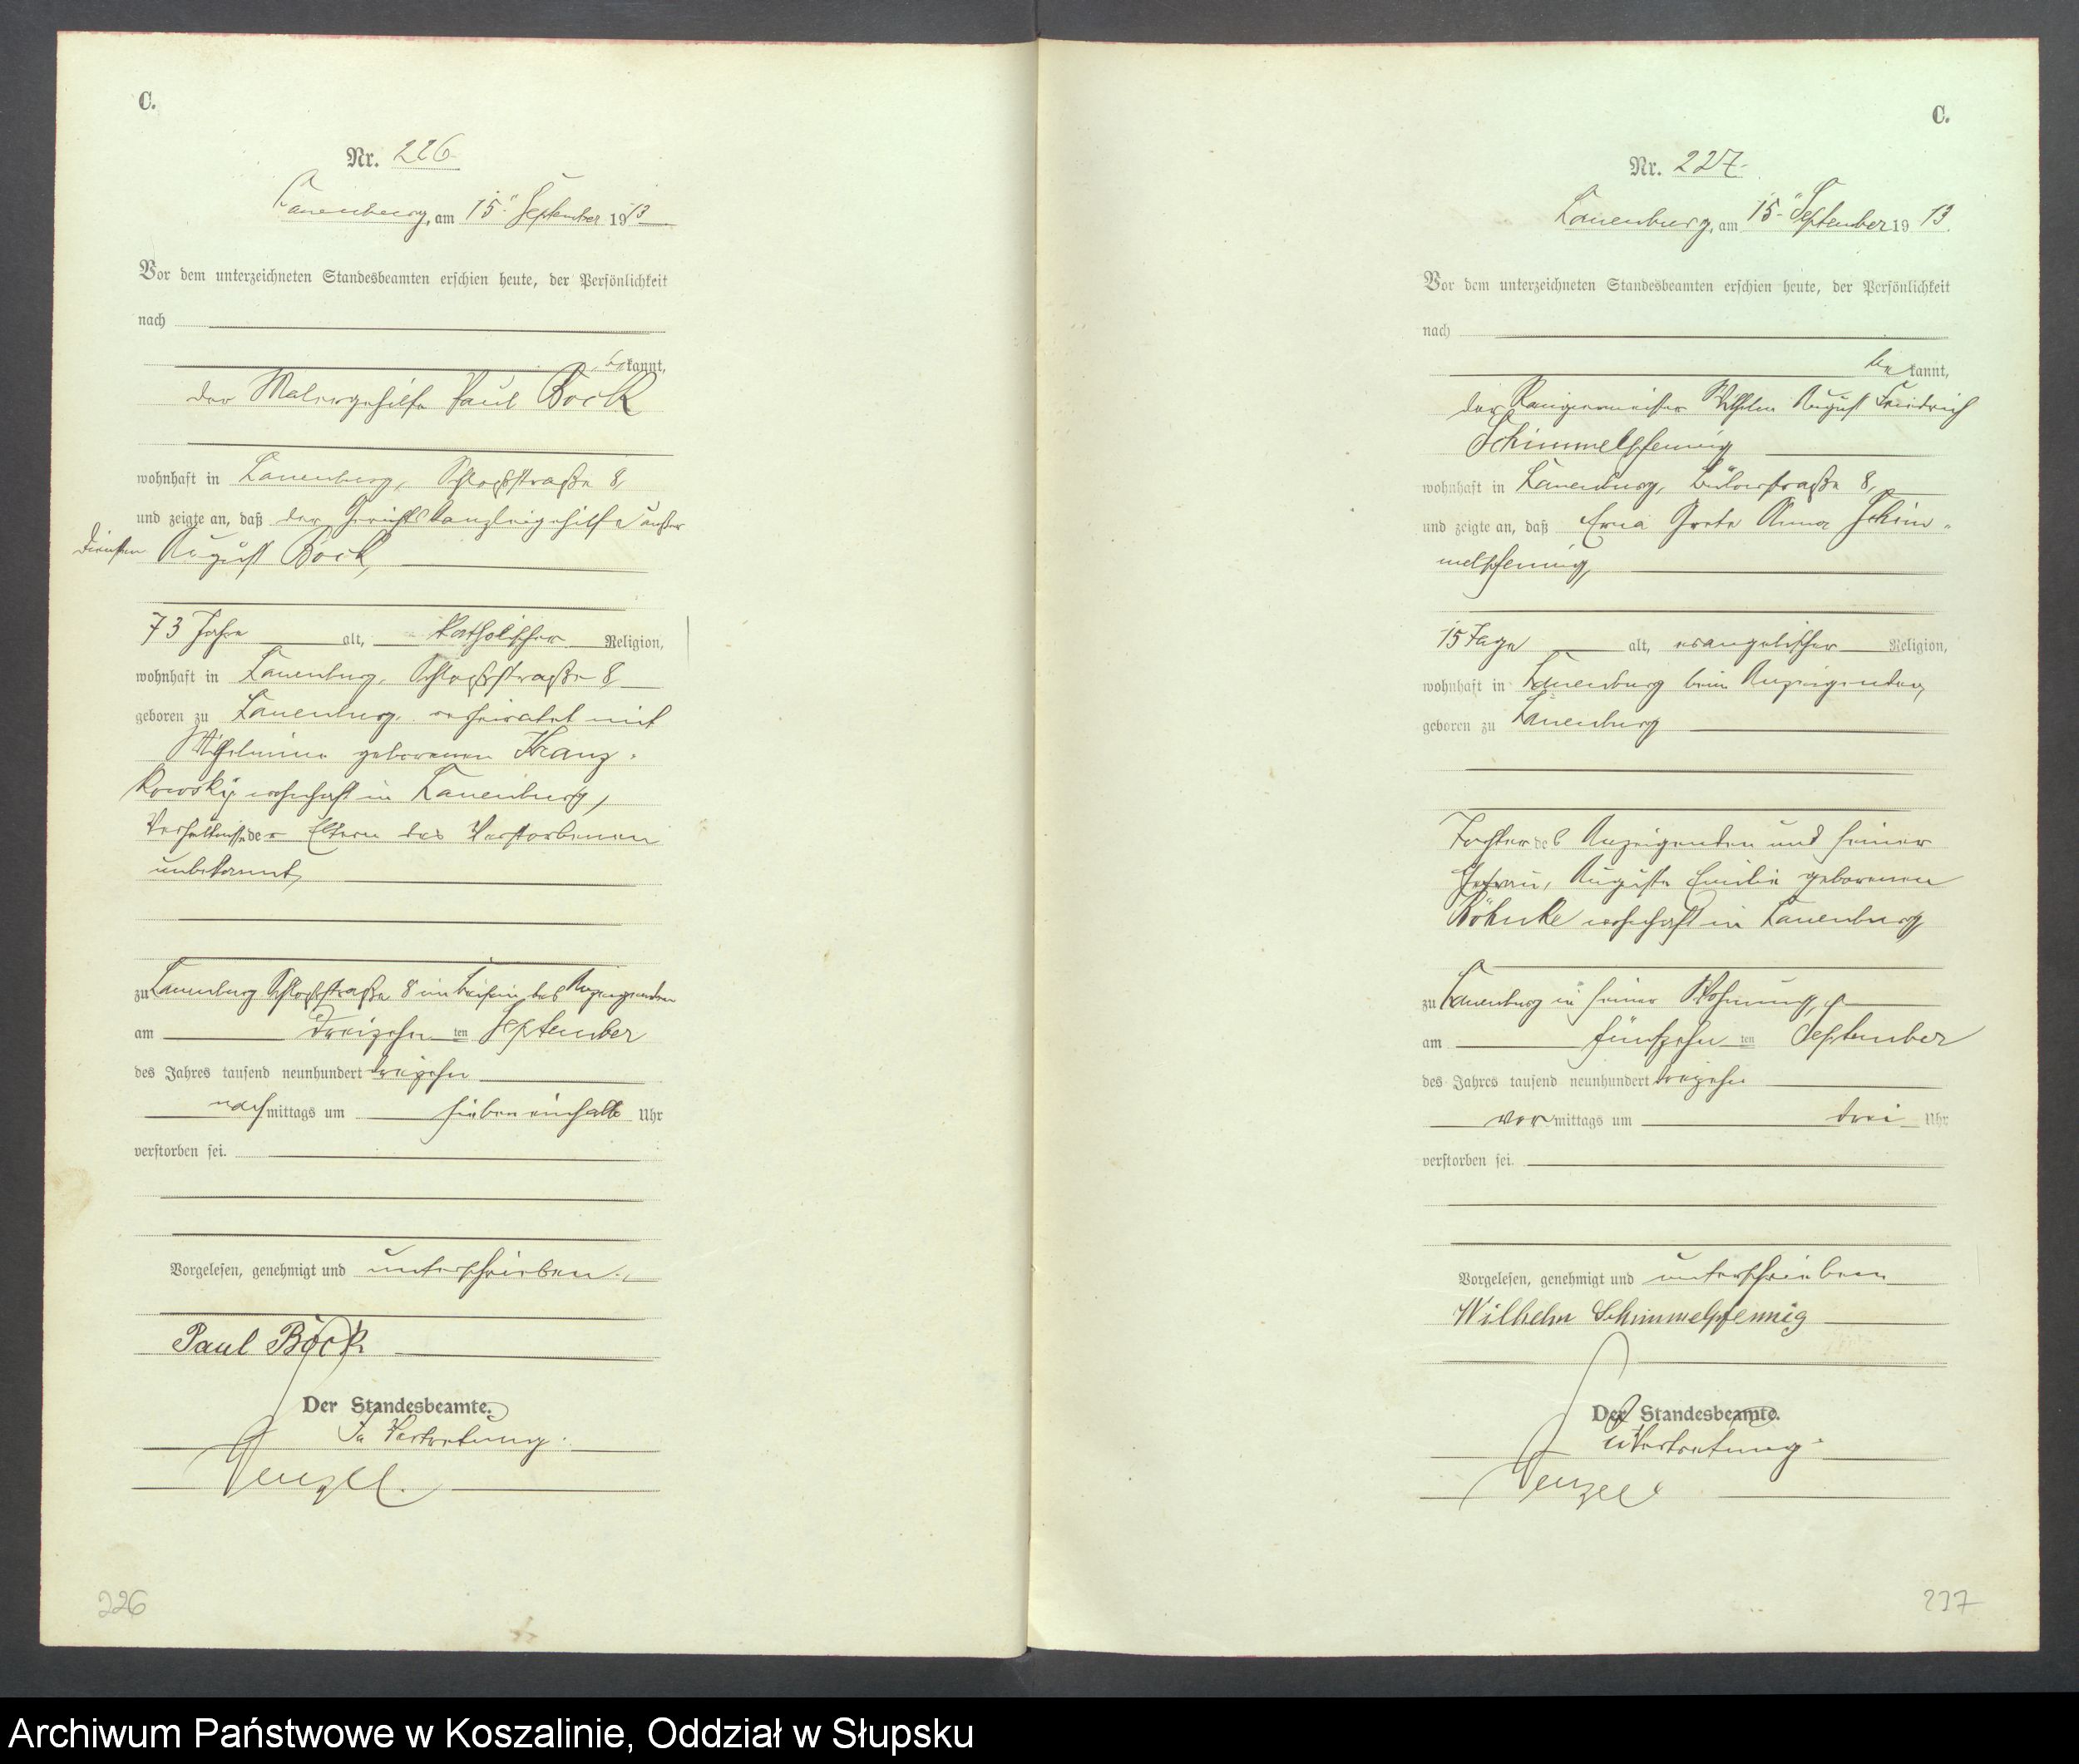 C.
Nr. 226
Lauenburg, am 15. September 1913
Vor dem unterzeichneten Standesbeamten erschien heute, der Persönlichkeit
nach
bekannt,
der Malergehilfe Paul Bock
wohnhaft in Lauenburg, Schloßstraße 8,
und zeigte an, daß der Gerichtskanzleigehilfe außer
Diensten August Bock,
73 Jahre alt, katholischer Religion,
wohnhaft in Lauenburg, Schloßstraße 8,
geboren zu Lauenburg, verheiratet mit
Wilhelmine geborenen Kranz-
kowski, wohnhaft in Lauenburg,
Verhältnisse der Eltern des Verstorbenen
unbekannt,
zu Lauenburg Schloßstraße 8 im Beisein des Anzeigenden
am dreizehn ten September
des Jahres tausend neunhundert dreizehn
nachmittags um sieben einhalb Uhr
verstorben sei.
Vorgelesen, genehmigt und unterschrieben.
Paul Bock
Der Standesbeamte.
In Vertretung.
Wenzel.
226
C.
Nr. 227.
Lauenburg, am 15. September 1913.
Vor dem unterzeichneten Standesbeamten erschien heute, der Persönlichkeit
nach
bekannt,
der Rangiermeister Wilhelm August Friedrich
Schimmelpfennig
wohnhaft in Lauenburg, Bülowstraße 8,
und zeigte an, daß Erna Grete Anna Schim-
melpfennig,
15 Tage alt, evangelischer Religion,
wohnhaft in Lauenburg beim Anzeigenden,
geboren zu Lauenburg
Tochter des Anzeigenden und seiner
Ehefrau, Auguste Emilie geborenen
Böhnke wohnhaft in Lauenburg,
zu Lauenburg in seiner Wohnung,
am fünfzehn ten September
des Jahres tausend neunhundert dreizehn
vormittags um drei Uhr
verstorben sei.
Vorgelesen, genehmigt und unterschrieben
Wilhelm Schimmelpfennig
Der Standesbeamte.
In Vertretung.
Wenzel
237
Archiwum Państwowe w Koszalinie, Oddział w Słupsku